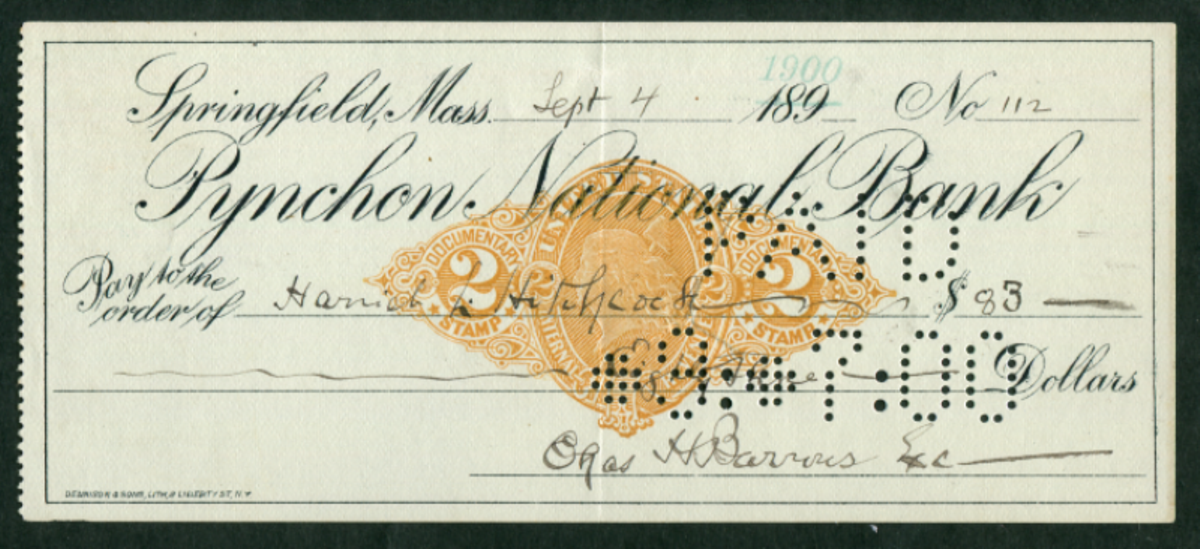 1900
Springfield, Mass. Sept 4 189 No 112
Pynchon National Bank
PAID
UNITED STATES
DOCUMENTARY DOCUMENTARY
2 2
STAMP STAMP
INTERNAL
Pay to the order of Harriet L. Hitchcock $ 83
Eighty three Dollars
Chas H Barrows Exc
DENNISON & SONS, LITH, LIBERTY ST, N.Y.